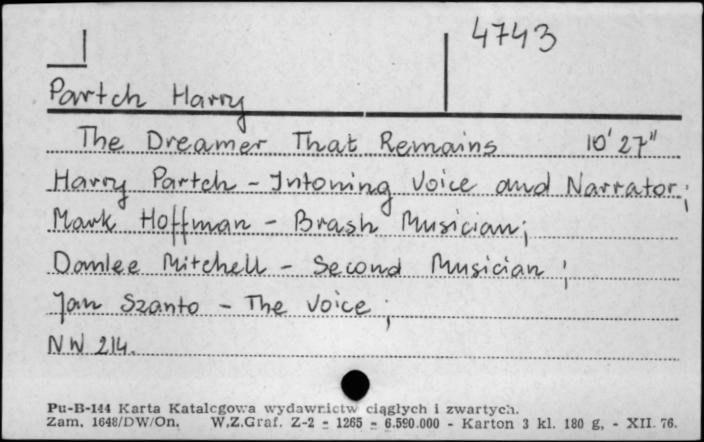 4743
Partch Harry
The Dreamer That Remains 10' 27"
Harry Partch - Intoning Voice and Narrator;
Mark Hoffman - Brash Musician;
Danlee Mitchell - Second Musician;
Jan Szanto - The Voice;
NW 214.
Pu-B-144 Karta Katalogowa wydawnictw ciągłych i zwartych.
Zam. 1648/DW/On. W.Z.Graf. Z-2 = 1265 = 6.590.000 - Karton 3 kl. 180 g, - XII. 76.